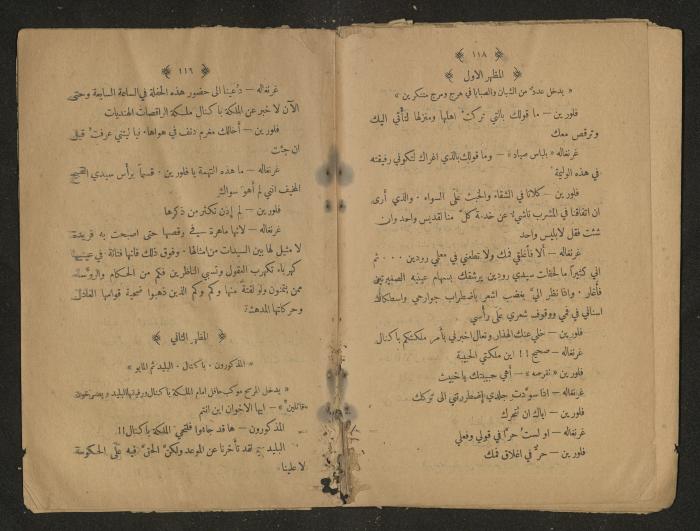 ﴿ ١١٨ ﴾
﴿ المظهر الاول ﴾
« يدخل عدد من الشبان والصبايا في هرج ومرج متنكرين »
فلورين — ما قولك بالتي تركت اهلها ومنزلها لتأتي اليك
وترقص معك
غرنغاله « بلباس صياد » — وما قولك بالذي اغراك لتكوني رفيقته
في هذه الوليمة
فلورين — كلانا في الشقاء والخبث على السواء . والذي أرى
ان اتفاقنا في المشرب ناشئ عن خدمة كل منا لقديس واحد وان
شئت فقل لابليس واحد
غرنغاله — ألا فأغلقي فمك ولا تطعني في معلي رودين . . . ثم
اني كثيراً ما لحظت سيدي رودين يرشقك بسهام عينيه الصغيرتين
فأغار . واذا نظر اليَّ بغضب اشعر باضطراب جوارحي واصطكاك
اسناني في فمي ووقوف شعري على رأسي
فلورين — خلي عنك الهذار وتعال اخبرني بأمر ملكتكم باكنال
غرنغاله — صحيح !! اين ملكتي الحبيبة
فلورين « تقرصه » — أهي حبيبتك ياخبيث
غرنغاله — اذا سوّدت جلدي إضطررتني الى تركك
فلورين — اياك ان تتحرك
غرنغاله — او لستُ حرًّا في قولي وفعلي
فلورين — حرٌّ في اغلاق فمك
﴿ ١١٦ ﴾
غرنغاله — دُعينا الى حضور هذه الحفلة في الساعة السابعة وحتى
الآن لا خبر عن الملكة باكنال ملكة الراقصات الهنديات
فلورين — أخالك مغرم دنف في هواها . فيا ليتني عرفت قبل
ان جئت
غرنغاله — ما هذه التهمة يا فلورين . قسماً برأس سيدي القبيح
المخيف انني لم أهوَ سواك
فلورين — لم إذن تكثر من ذكرها
غرنغاله — لانها ماهرة في رقصها حتى اصبحت به فريدة
لا مثيل لها بين السيدات من امثالها . وفوق ذلك فانها فتانة في عينيها
كهرباء تكهرب العقول وتسبي الناظرين فكم من الحكام والرؤساء
ممن يتمنون ولو لفتةً منها وكم وكم الذين ذهبوا ضحية قوامها العادل
وحركاتها المدهشة
﴿ المظهر الثاني ﴾
« المذكورون . باكنال . البليد ثم المايو »
« يدخل المرسح موكب حافل امام الملكة باكنال ورفيقها البليد
« قائلين » — ايها الاخوان اين انتم
المذكورون — ها قد جاءوا فلتحيَ الملكة باكنال !!
البليد — لقد تأخرنا عن الموعد ولكنَّ الحقَّ فيه على الحكومة
لا علينا